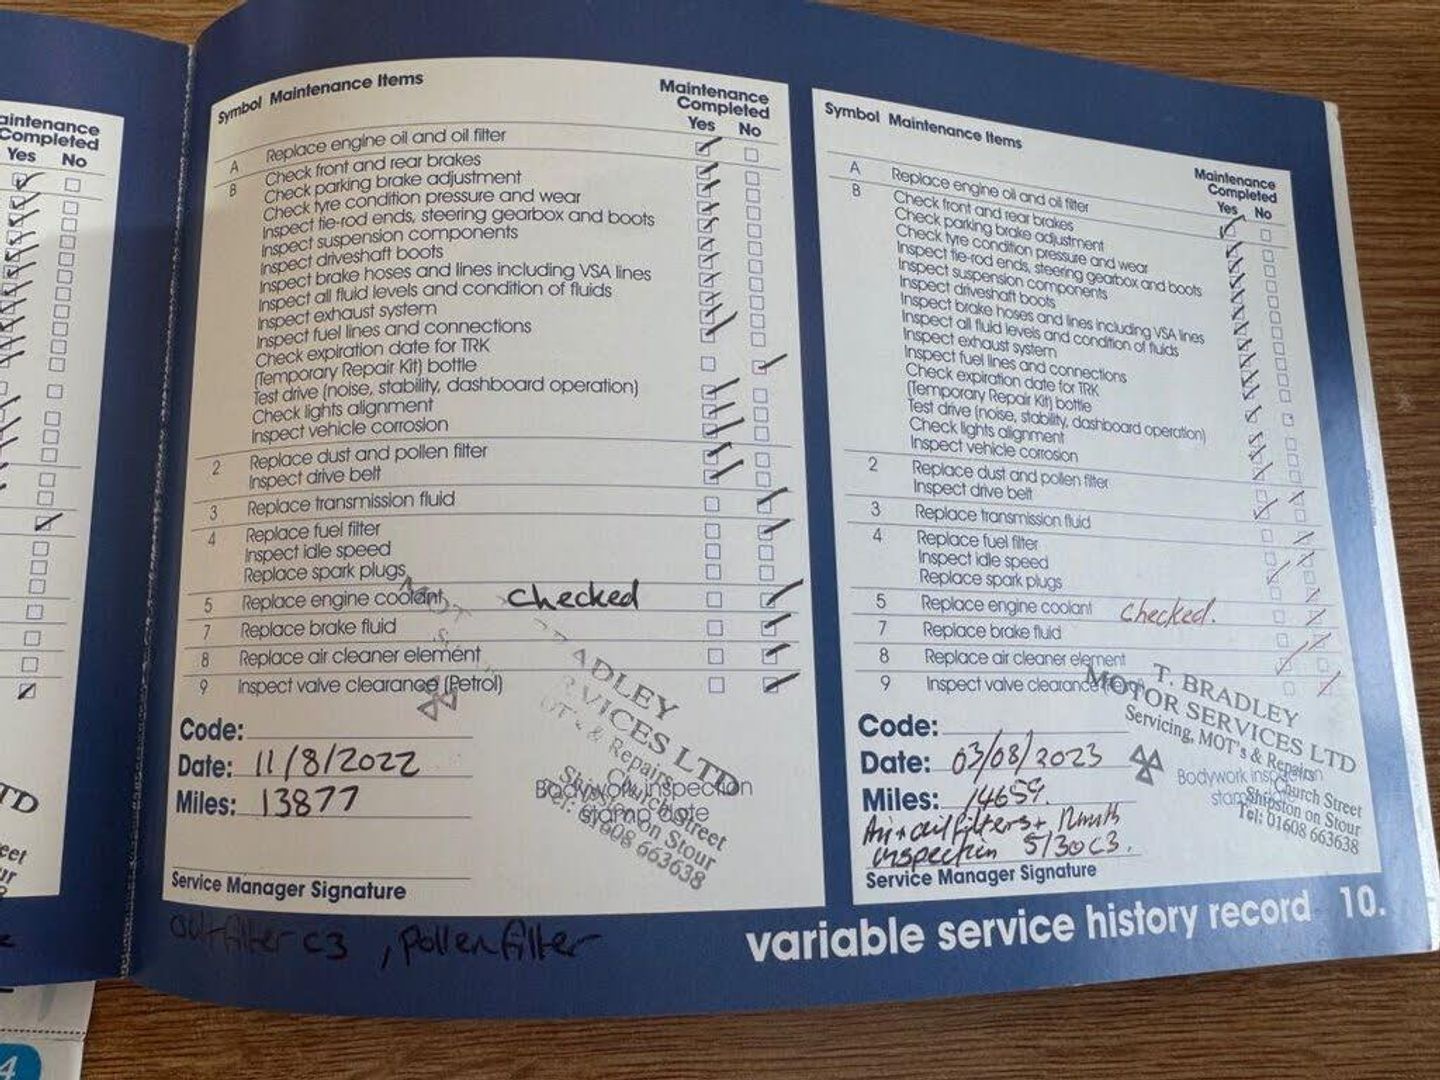 aintenance
Completed
Yes No
TD
eet
ur
4
Symbol Maintenance Items
Maintenance
Completed
Yes No
A Replace engine oil and oil filter
B Check front and rear brakes
Check parking brake adjustment
Check tyre condition pressure and wear
Inspect tie-rod ends, steering gearbox and boots
Inspect suspension components
Inspect driveshaft boots
Inspect brake hoses and lines including VSA lines
Inspect all fluid levels and condition of fluids
Inspect exhaust system
Inspect fuel lines and connections
Check expiration date for TRK
(Temporary Repair Kit) bottle
Test drive (noise, stability, dashboard operation)
Check lights alignment
Inspect vehicle corrosion
2 Replace dust and pollen filter
Inspect drive belt
3 Replace transmission fluid
4 Replace fuel filter
Inspect idle speed
Replace spark plugs
5 Replace engine coolant checked
7 Replace brake fluid
8 Replace air cleaner element
9 Inspect valve clearance (Petrol)
Code:
Date: 11/8/2022
Miles: 13877
ADLEY
VICES LTD
& Repairs
Church Street
Shipston on Stour
Tel: 01608 663638
Bodywork inspection
stamp
Service Manager Signature
filter C3, pollen filter
Symbol Maintenance Items
Maintenance
Completed
Yes No
A Replace engine oil and oil filter
B Check front and rear brakes
Check parking brake adjustment
Check tyre condition pressure and wear
Inspect tie-rod ends, steering gearbox and boots
Inspect suspension components
Inspect driveshaft boots
Inspect brake hoses and lines including VSA lines
Inspect all fluid levels and condition of fluids
Inspect exhaust system
Inspect fuel lines and connections
Check expiration date for TRK
(Temporary Repair Kit) bottle
Test drive (noise, stability, dashboard operation)
Check lights alignment
Inspect vehicle corrosion
2 Replace dust and pollen filter
Inspect drive belt
3 Replace transmission fluid
4 Replace fuel filter
Inspect idle speed
Replace spark plugs
5 Replace engine coolant checked.
7 Replace brake fluid
8 Replace air cleaner element
9 Inspect valve clearance
T. BRADLEY
MOTOR SERVICES LTD
Servicing, MOT's & Repairs
Church Street
Shipston on Stour
Tel: 01608 663638
Bodywork inspection
Code:
Date: 03/08/2023
Miles: 14659.
Air + oil filters + 12mth
inspection 5/30 C3.
Service Manager Signature
variable service history record 10.